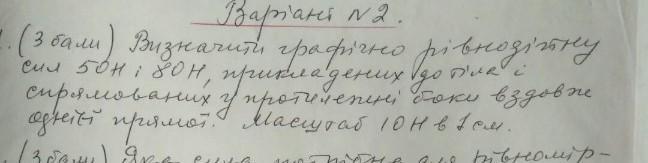 Варіант №2.
1. (3 бали) Визначити графічно рівнодійну
сил 50Н і 80Н, прикладених до тіла і
спрямованих у протилежні боки вздовж
однієї прямої. Масштаб 10Н в 1см.
(3 бали) Яка сила потрібна для рівномір-